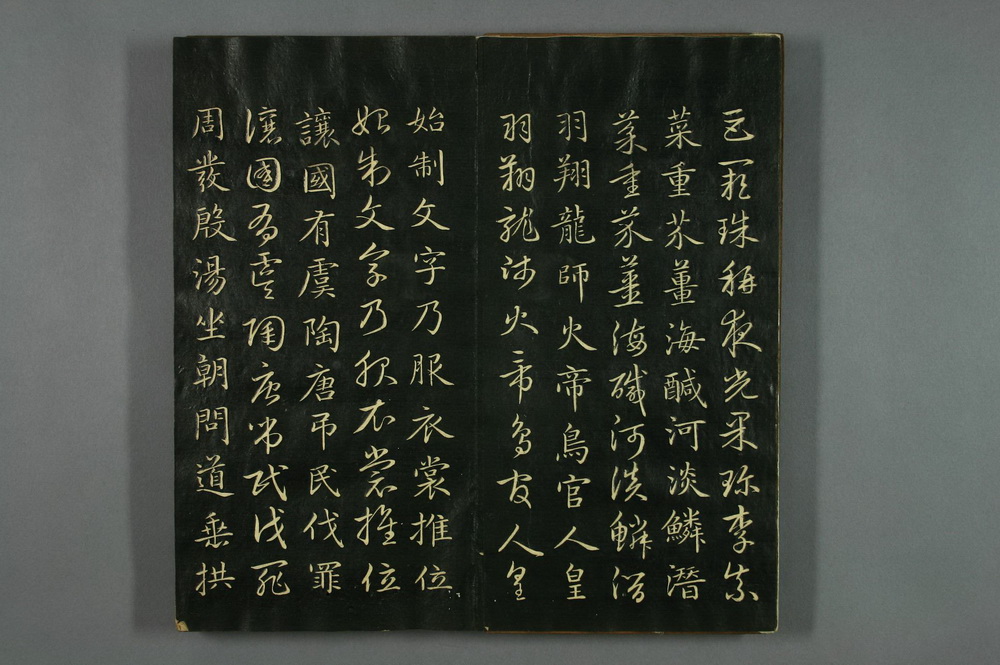 巨闕珠稱夜光果珍李柰
菜重芥薑海醎河淡鱗潛
菜重芥薑海醎河淡鱗潛
羽翔龍師火帝鳥官人皇
羽翔龍師火帝鳥官人皇
始制文字乃服衣裳推位
始制文字乃服衣裳推位
讓國有虞陶唐吊民伐罪
讓國有虞陶唐吊民伐罪
周發殷湯坐朝問道垂拱